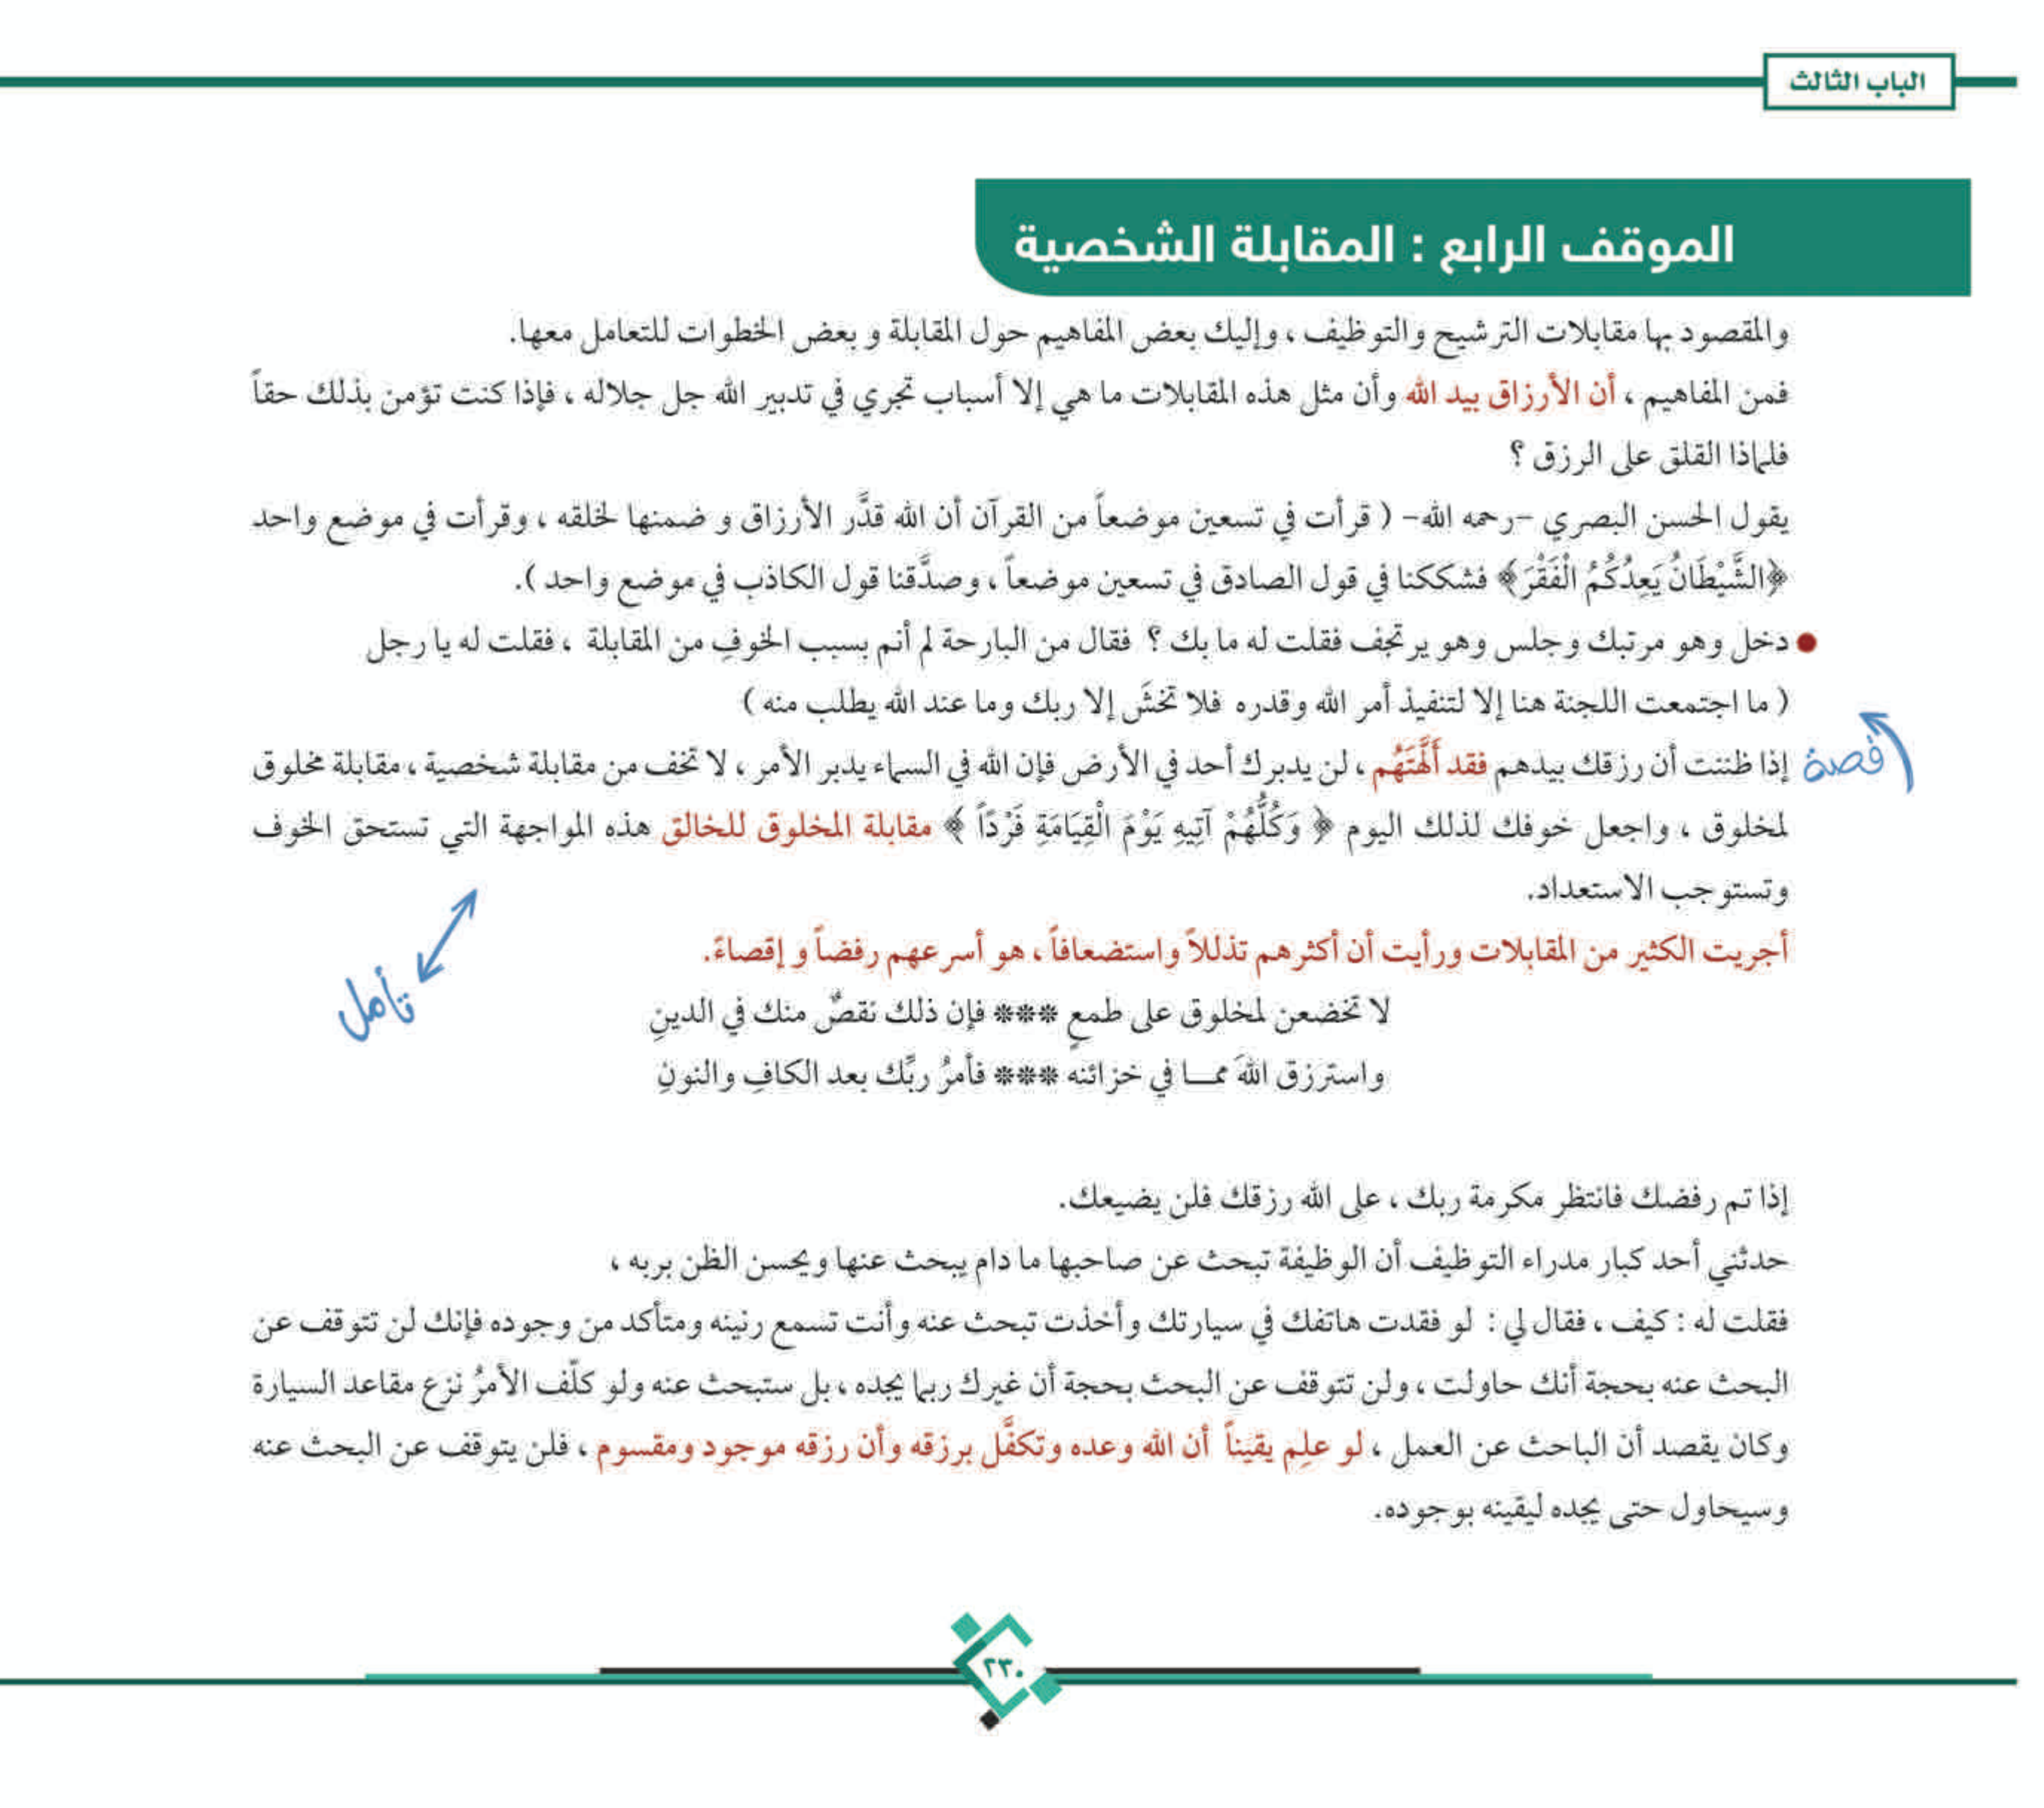 الباب الثالث
الموقف الرابع : المقابلة الشخصية
والمقصود بها مقابلات الترشيح والتوظيف ، وإليك بعض المفاهيم حول المقابلة و بعض الخطوات للتعامل معها.
فمن المفاهيم ، أن الأرزاق بيد الله وأن مثل هذه المقابلات ما هي إلا أسباب تجري في تدبير الله جل جلاله ، فإذا كنت تؤمن بذلك حقاً
فلماذا القلق على الرزق ؟
يقول الحسن البصري –رحمه الله– ( قرأت في تسعين موضعاً من القرآن أن الله قدَّر الأرزاق و ضمنها لخلقه ، وقرأت في موضع واحد
﴿الشَّيْطَانُ يَعِدُكُمُ الْفَقْرَ﴾ فشككنا في قول الصادق في تسعين موضعاً ، وصدَّقنا قول الكاذب في موضع واحد ).
● دخل وهو مرتبك وجلس وهو يرتجف فقلت له ما بك ؟ فقال من البارحة لم أنم بسبب الخوفِ من المقابلة ، فقلت له يا رجل
( ما اجتمعت اللجنة هنا إلا لتنفيذ أمر الله وقدره فلا تخشَ إلا ربك وما عند الله يطلب منه )
قصة
إذا ظننت أن رزقك بيدهم فقد ألَّهتَهُم ، لن يدبرك أحد في الأرض فإن الله في السماء يدبر الأمر ، لا تخف من مقابلة شخصية ، مقابلة مخلوق
لمخلوق ، واجعل خوفك لذلك اليوم ﴿ وَكُلُّهُمْ آتِيهِ يَوْمَ الْقِيَامَةِ فَرْدًا ﴾ مقابلة المخلوق للخالق هذه المواجهة التي تستحق الخوف
وتستوجب الاستعداد.
أجريت الكثير من المقابلات ورأيت أن أكثرهم تذللاً واستضعافاً ، هو أسرعهم رفضاً و إقصاءً.
تأمل
لا تخضعن لمخلوق على طمعٍ *** فإن ذلك نقصٌ منك في الدينِ
واسترزق اللهَ ممـا في خزائنه *** فأمرُ ربِّك بعد الكافِ والنونِ
إذا تم رفضك فانتظر مكرمة ربك ، على الله رزقك فلن يضيعك.
حدثني أحد كبار مدراء التوظيف أن الوظيفة تبحث عن صاحبها ما دام يبحث عنها ويحسن الظن بربه ،
فقلت له : كيف ، فقال لي : لو فقدت هاتفك في سيارتك وأخذت تبحث عنه وأنت تسمع رنينه ومتأكد من وجوده فإنك لن تتوقف عن
البحث عنه بحجة أنك حاولت ، ولن تتوقف عن البحث بحجة أن غيرك ربما يجده ، بل ستبحث عنه ولو كلّف الأمرُ نزع مقاعد السيارة
وكان يقصد أن الباحث عن العمل ، لو علِم يقيناً أن الله وعده وتكفَّل برزقه وأن رزقه موجود ومقسوم ، فلن يتوقف عن البحث عنه
وسيحاول حتى يجده ليقينه بوجوده.
٢٣٠